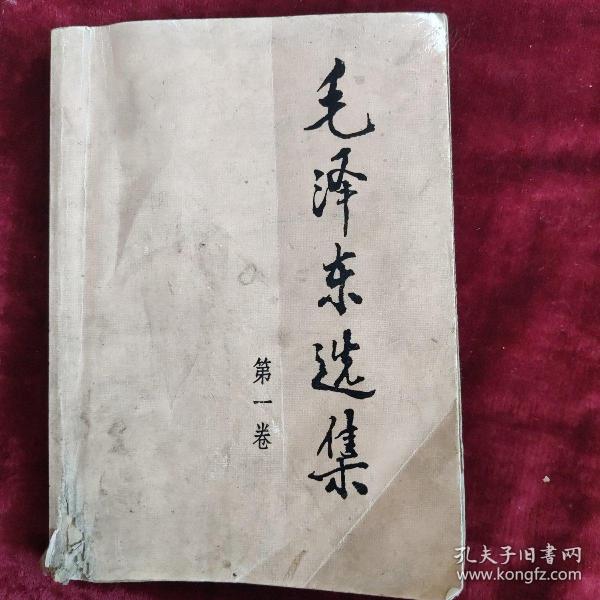 毛泽东选集
第一卷
孔夫子旧書网
www.kongfz.com